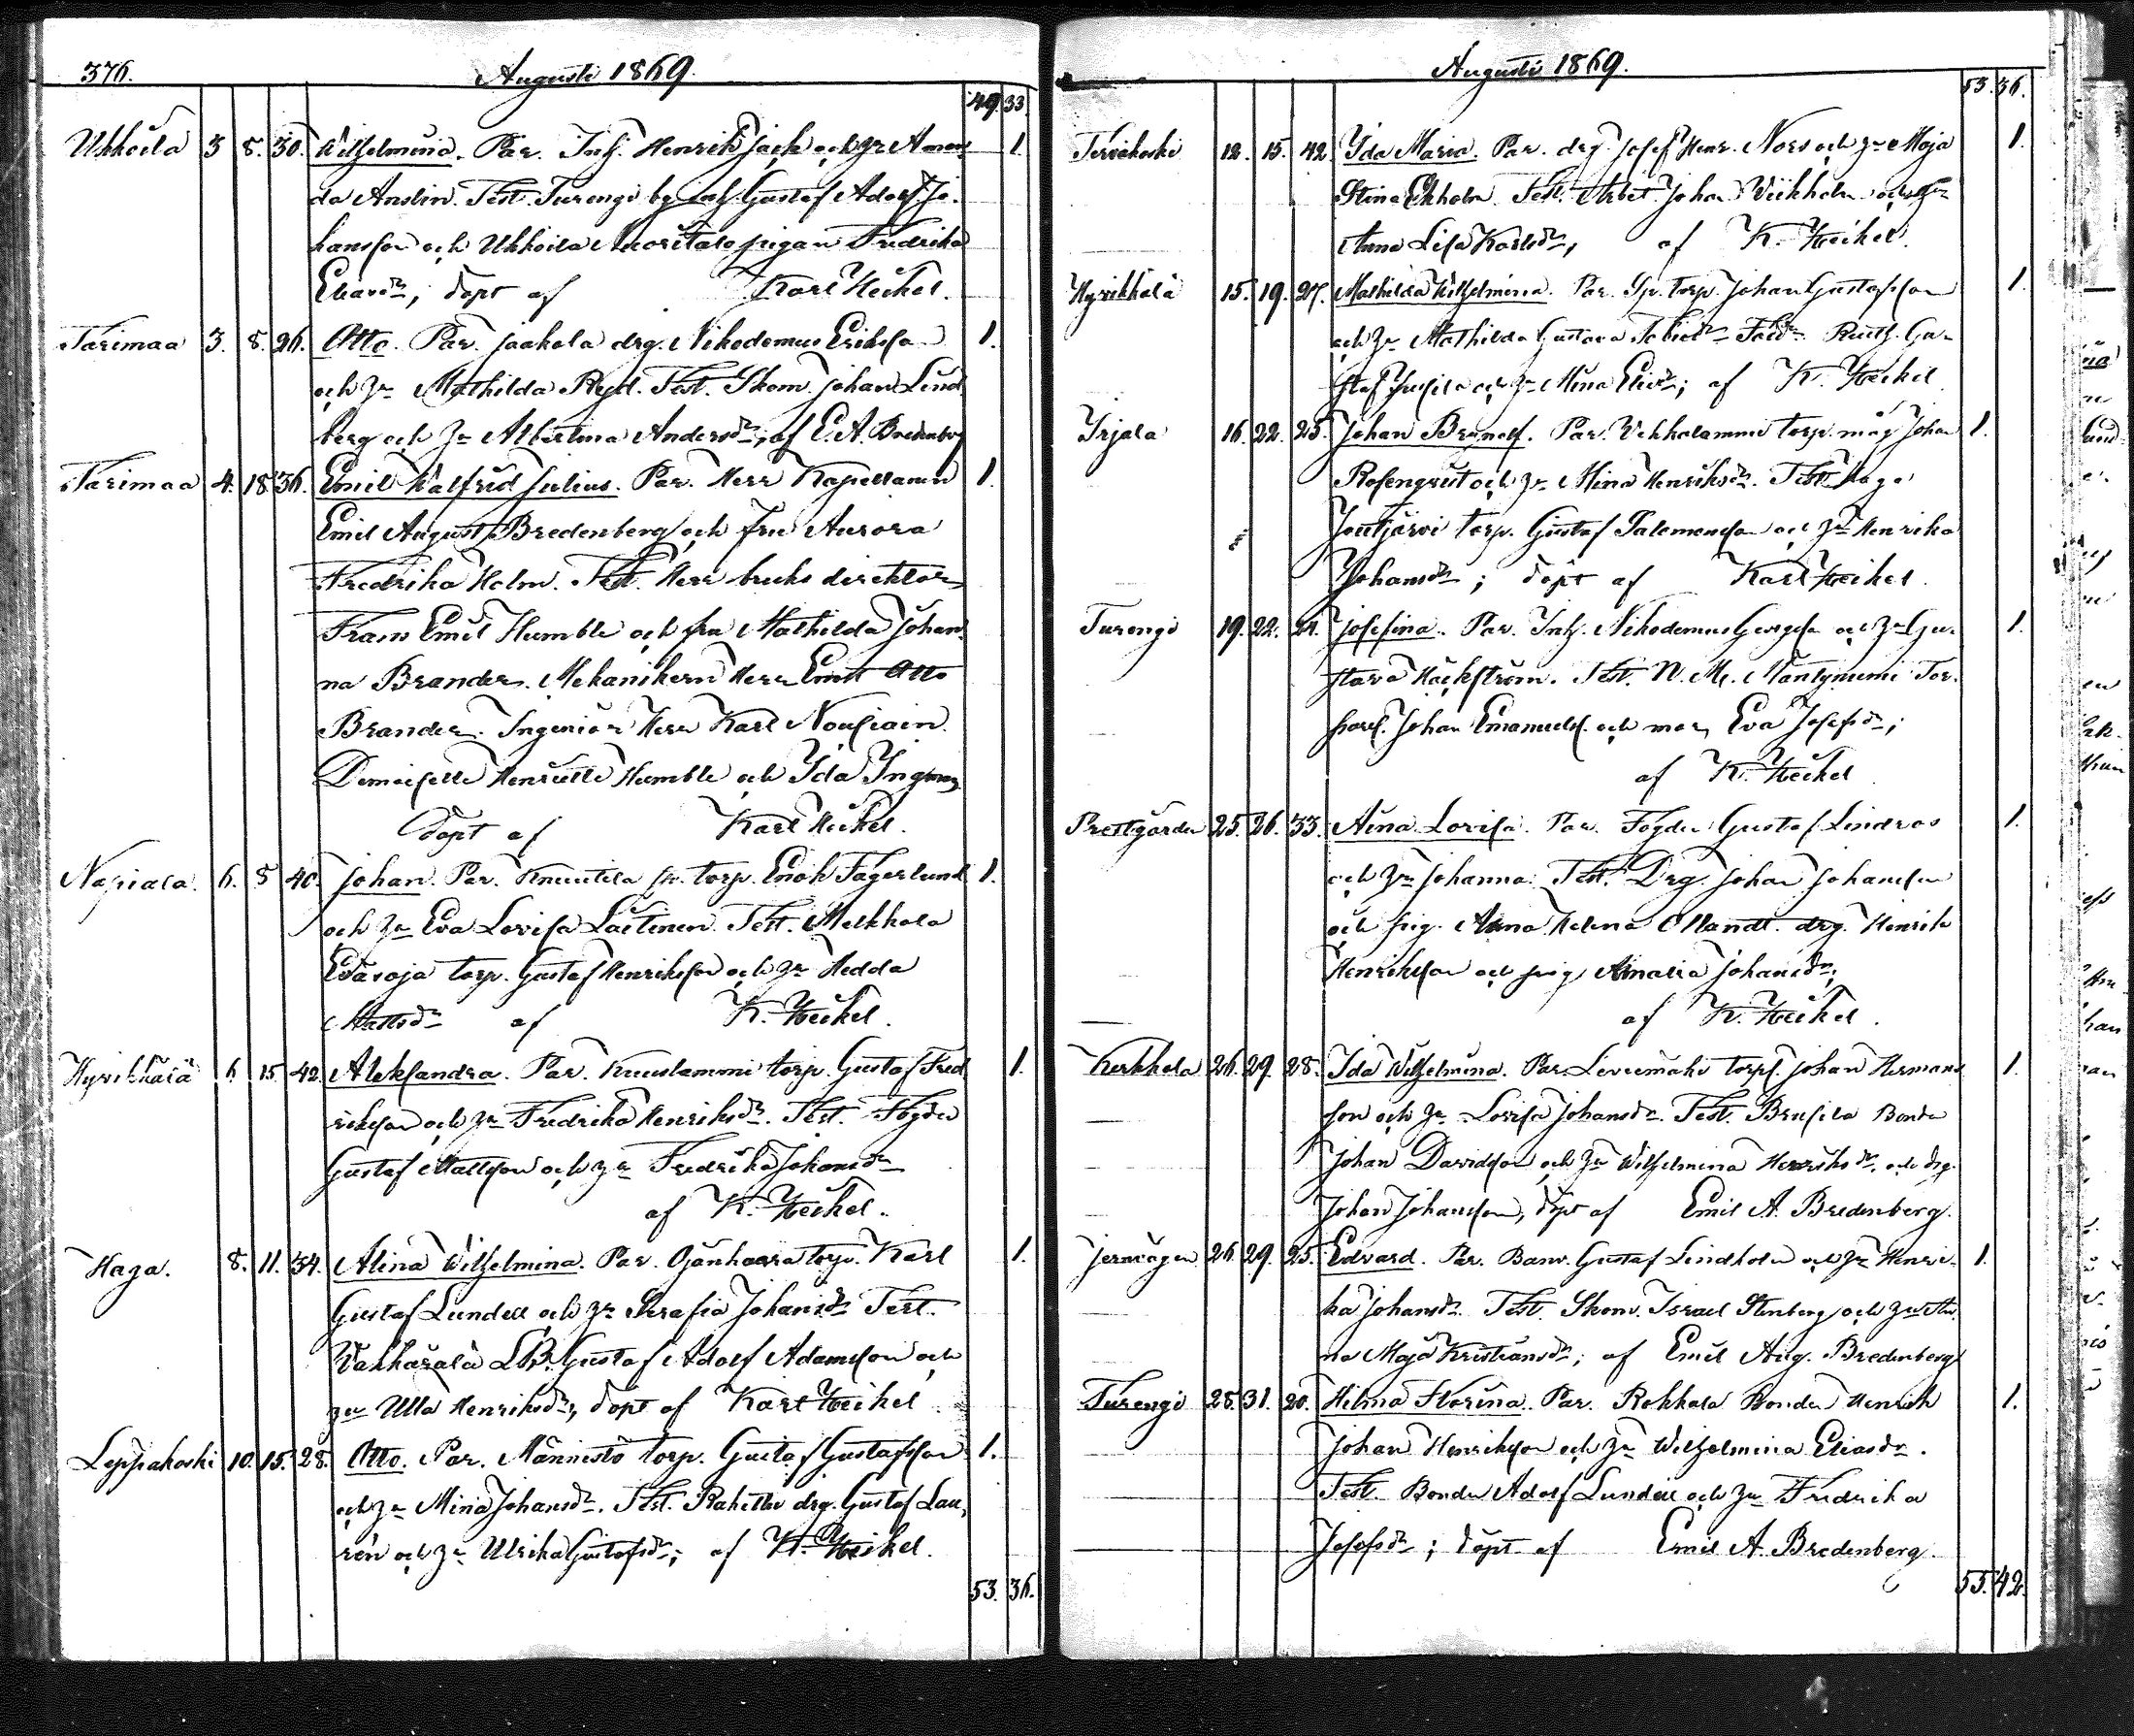 376. Augusti 1869.
49. 33
Ukkoila 3 8. 30. Wilhelmina. Par. Inh. Henrik Jack och hu Aman- 1.
da Anslin. Test. Turengi by inh. Gustaf Adolf Jo-
hansson och Ukkoila pigan Fredrika
Eliasdr; döpt af Karl Heikel.
Tarimaa 3. 8. 26. Otto. Par. Jaakola drg. Nikodemus Eriksson 1.
och hu Mathilda Ryd. Test. Skom. Johan Lind-
berg och hu Albertina Andersdr; af E. A. Bredenberg
Tarimaa 4. 18. 36. Emil Walfrid Julius. Par. Herr Kapellanen 1.
Emil August Bredenberg och fru Aurora
Fredrika Holm. Test. Herr bruks direktor
Frans Emil Humble och fru Mathilda Johan-
na Brander. Mekanikern Herr Emil Otto
Brander. Ingeniör Herr Karl
Demoiselle Henriette Humble och Ida Ingman
döpt af Karl Heikel.
Napiala. 6. 8 40. Johan. Par. Knuutila torp. Enok Fagerlund 1.
och hu Eva Lovisa Laitinen. Test. Melkkola
torp. Gustaf Henriksson och hu Hedda
Mattsdr af K. Heikel.
Hyvikkälä 6. 15. 42. Aleksandra. Par. Kuuslammi torp. Gustaf Fred- 1.
riksson och hu Fredrika Henriksdr. Test. Fogden
Gustaf Mattsson och hu Fredrika Johansdr
af K. Heikel.
Haga. 8. 11. 34. Alina Wilhelmina. Par. Ojanhaara torp. Karl 1.
Gustaf Lundell och hu Serafia Johansdr. Test.
LB. Gustaf Adolf Adamsson och
hu Ulla Henriksdr, döpt af Karl Heikel
Leppäkoski 10. 15. 28. Otto. Par. Männistö torp. Gustaf Gustafsson 1.
och hu Mina Johansdr. Test. drg. Gustaf Lau-
rén och hu Ulrika Gustafsdr; af K. Heikel.
53. 36.
Augusti 1869.
53. 36.
Tervakoski 12. 15. 42. Ida Maria. Par. drg. Josef Henr. Nors och hu Maja 1.
Stina Ekholm. Test. Arbet. Johan Wiikholm och hu
Anna Lisa Karlsdr, af K. Heikel.
Hyvikkälä 15. 19. 27. Mathilda Wilhelmina. Par. torp. Johan Gustafsson 1.
och hu Mathilda Gustava Gu-
staf och hu Mina; af K. Heikel
Irjala 16. 22. 25. Johan Brynolf. Par. Vehkalammi torp. måg Johan 1.
Rosenqvist och hu Mina Henriksdr. Test. Haga
Joutjärvi torp. Gustaf Salomonsson och hu Henrika
Johansdr; döpt af Karl Heikel.
Turengi 19. 22. 24. Josefina. Par. Inh. Nikodemus och hu Gu- 1.
stava Häckström. Test. N. M. Mäntyniemi Tor-
pars. Johan Emanuelss. och mor Eva Josefsdr;
af K. Heikel
Prestgården 25. 26. 33. Aina Lovisa. Par. Fogden Gustaf Lindros 1.
och hu Johanna. Test. Drg. Johan Johansson
och pig. Anna Helena drg. Henrik
Henriksson och pig. Amalia Johansdr;
af K. Heikel.
Kerkkola 26. 29. 28. Ida Wilhelmina. Par. torp. Johan Herman- 1.
son och hu Lovisa Johansdr. Test. Brusila Bonden
Johan Davidsson och hu Wilhelmina Henriksdr. och drg.
Johan Johansson, döpt af Emil A. Bredenberg.
Jernvägen 26. 29. 25. Edvard. Par. Banv. Gustaf Lindholm och hu Henri- 1.
ka Johansdr. Test. Skom. Israel Stenberg och hu An-
na Maja Kristiansdr; af Emil Aug. Bredenberg
Turengi 28. 31. 20. Hilma Florina. Par. Rokkala Bonden Henrik 1.
Johan Henriksson och hu Wilhelmina Eliasdr.
Test. Bonden Adolf Lundell och hu Fredrika
Josefsdr; döpt af Emil A. Bredenberg.
55. 42.